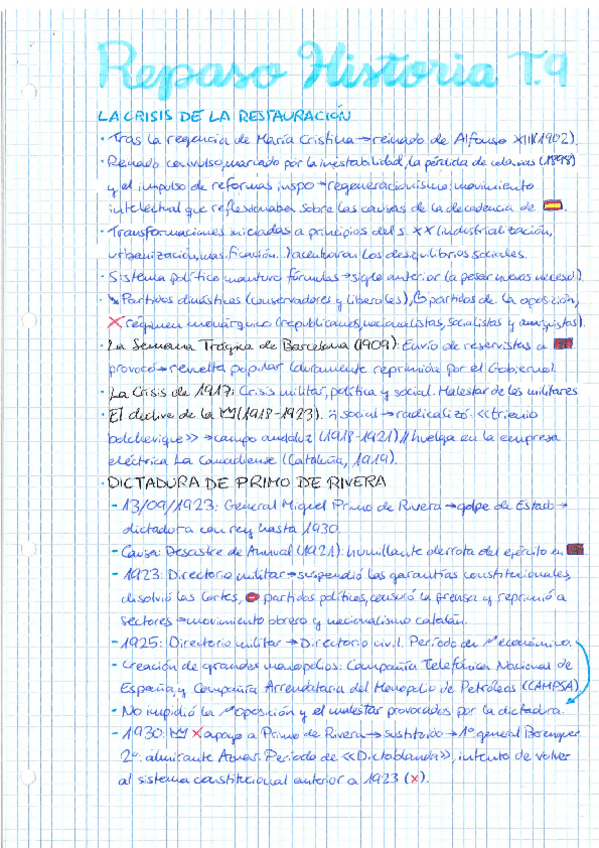 Repaso Historia T.9
LA CRISIS DE LA RESTAURACIÓN
· Tras la regencia de María Cristina → reinado de Alfonso XIII (1902).
· Reinado convulso, marcado por la inestabilidad, la pérdida de colonias (1898)
y el impulso de reformas inspo → regeneracionismo: movimiento
intelectual que reflexionaba sobre las causas de la decadencia de 🇪🇸.
· Transformaciones iniciadas a principios del s. XX (industrialización,
urbanización, masificación...) acentuaron los desequilibrios sociales.
· Sistema político mantuvo fórmulas → siglo anterior (a pesar nuevas neces.)
↘ Partidos dinásticos (conservadores y liberales), partidos de la oposición,
X régimen monárquico (republicanos, nacionalistas, socialistas y anarquistas).
· La Semana Trágica de Barcelona (1909): Envío de reservistas a 🇲🇦
provocó → revuelta popular (duramente reprimida por el Gobierno).
· La Crisis de 1917: Crisis militar, política y social. Malestar de los militares
· El declive de la (1918-1923). social → radicalizó. <<trienio
bolchevique>> → campo andaluz (1918-1921) // huelga en la empresa
eléctrica La Canadiense (Cataluña, 1919).
· DICTADURA DE PRIMO DE RIVERA
- 13/09/1923: General Miguel Primo de Rivera → golpe de Estado →
dictadura con rey hasta 1930.
- Causa: Desastre de Annual (1921): humillante derrota del ejército en 🇲🇦
- 1923: Directorio militar → suspendió las garantías constitucionales,
disolvió las Cortes, partidos políticos, censuró la prensa y reprimió a
sectores → movimiento obrero y nacionalismo catalán.
- 1925: Directorio militar → Directorio civil. Período de económico.
- Creación de grandes monopolios: Compañía Telefónica Nacional de
España y Compañía Arrendataria del Monopolio de Petróleos (CAMPSA)
- No impidió la oposición y el malestar provocados por la dictadura.
- 1930: X apoyo a Primo de Rivera → sustituido → 1º general Berenguer
2º. almirante Aznar. Período de <<Dictablanda>>, intento de volver
al sistema constitucional anterior a 1923 (x).